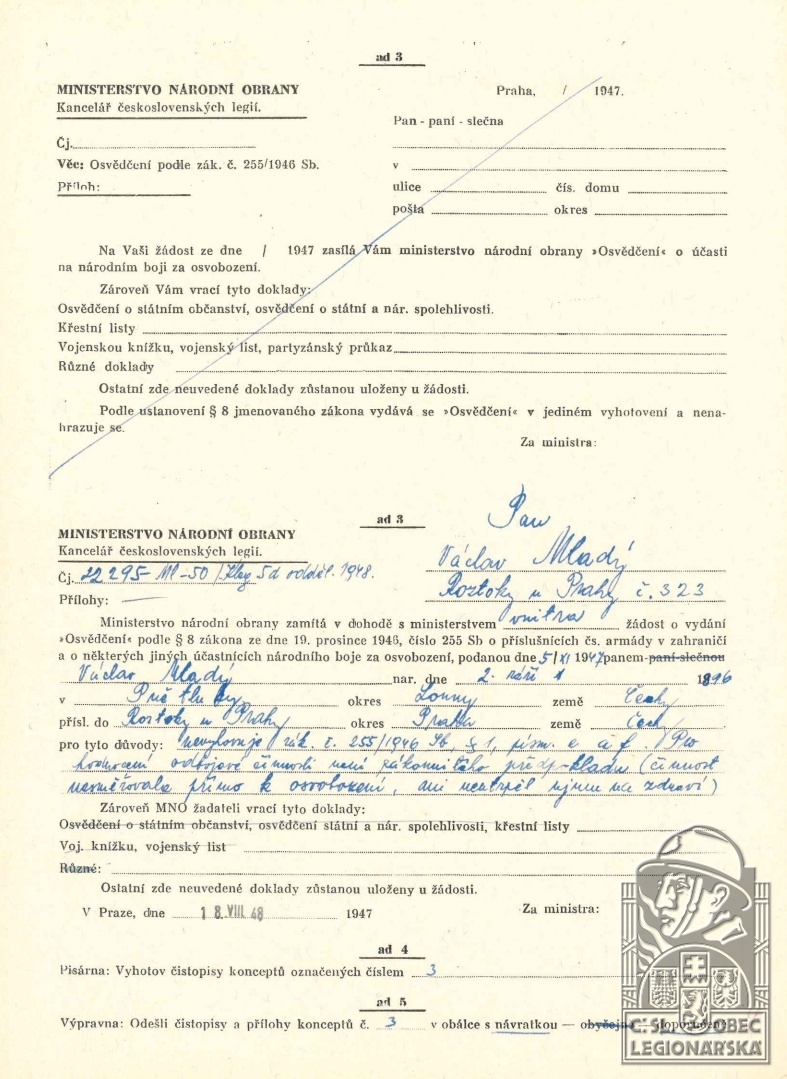 ad 3
MINISTERSTVO NÁRODNÍ OBRANY
Kancelář československých legií.
Praha, / 1947.
Pan - paní - slečna
Čj.
Věc: Osvědčení podle zák. č. 255/1946 Sb.
v
Příloh:
ulice čís. domu
pošta okres
Na Vaši žádost ze dne / 1947 zasílá Vám ministerstvo národní obrany »Osvědčení« o účasti
na národním boji za osvobození.
Zároveň Vám vrací tyto doklady:
Osvědčení o státním občanství, osvědčení o státní a nár. spolehlivosti.
Křestní listy
Vojenskou knížku, vojenský list, partyzánský průkaz
Různé doklady
Ostatní zde neuvedené doklady zůstanou uloženy u žádosti.
Podle ustanovení § 8 jmenovaného zákona vydává se »Osvědčení« v jediném vyhotovení a nena-
hrazuje se.
Za ministra:
ad 3
Pan
MINISTERSTVO NÁRODNÍ OBRANY
Kancelář československých legií.
Václav Mladý
Čj. 22295- Ml-50/ 5d odděl. 1948.
Roztoky u Prahy č. 323
Přílohy:
Ministerstvo národní obrany zamítá v dohodě s ministerstvem vnitra žádost o vydání
»Osvědčení« podle § 8 zákona ze dne 19. prosince 1946, číslo 255 Sb o příslušnících čs. armády v zahraničí
a o některých jiných účastnících národního boje za osvobození, podanou dne 5/XI 1947 panem-paní-slečnou
Václav Mladý nar. dne 2. září 1896
v okres Louny země Čechy
přísl. do Roztoky u Prahy okres Praha země Čechy
pro tyto důvody: nevyhovuje zák. č. 255/1946 Sb, § 1, písm. e a f. Pro
hodnocení odbojové činnosti není zákonného předpokladu (činnost
nesměřovala přímo k osvobození, ani neutrpěl újmu na zdraví)
Zároveň MNO žadateli vrací tyto doklady:
Osvědčení o státním občanství, osvědčení státní a nár. spolehlivosti, křestní listy
Voj. knížku, vojenský list
Různé:
Ostatní zde neuvedené doklady zůstanou uloženy u žádosti.
V Praze, dne 18. VIII. 48 1947
Za ministra:
ad 4
Písárna: Vyhotov čistopisy konceptů označených číslem 3
ad 5
Výpravna: Odešli čistopisy a přílohy konceptů č. 3 v obálce s návratkou — obyčejně — doporučeně
ČSLOBEC
LEGIONÁŘSKÁ